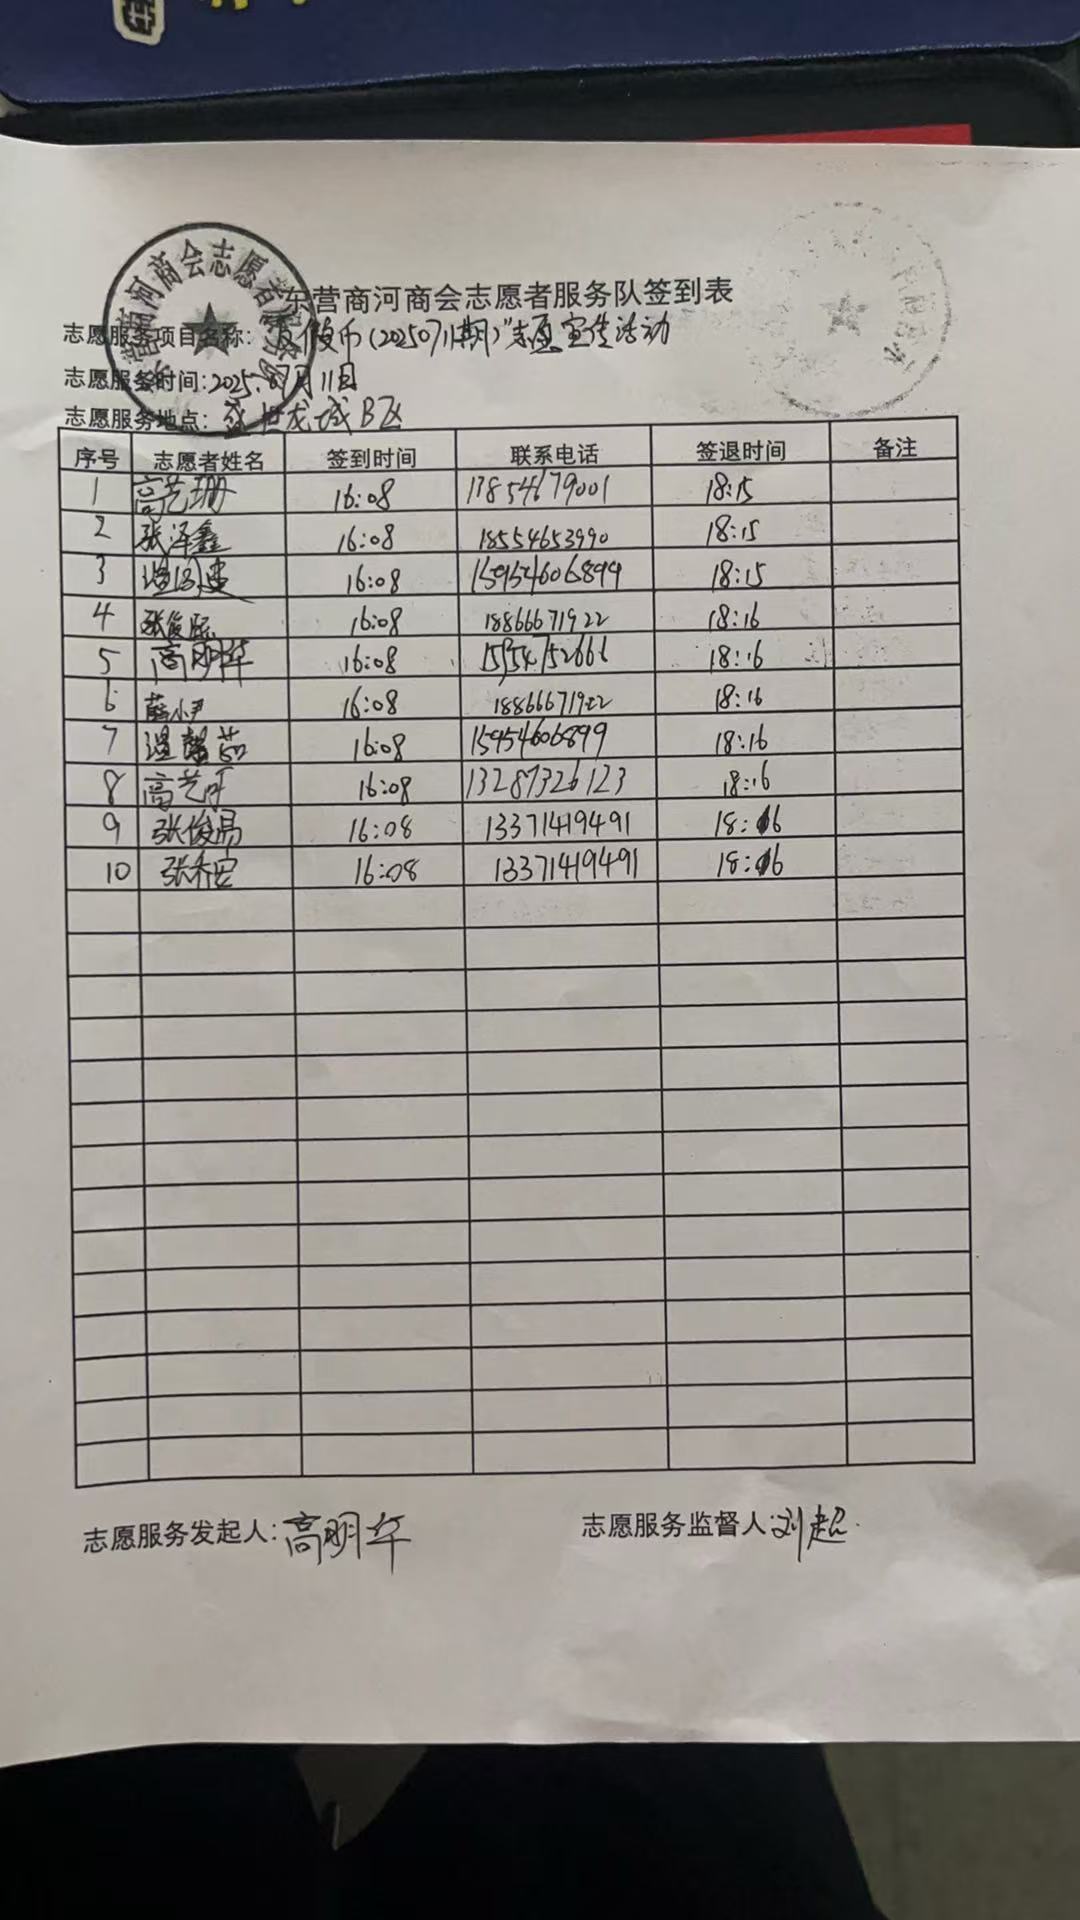 东营商河商会志愿者服务队
东营商河商会志愿者服务队签到表
志愿服务项目名称: 反假币(20250711期)"志愿宣传活动
志愿服务时间:2025.07月11日
志愿服务地点: 盛世龙城B区
序号 志愿者姓名 签到时间 联系电话 签退时间 备注
1 高艺珊 16:08 17854679001 18:15
2 张泽鑫 16:08 18554653990 18:15
3 16:08 15954606899 18:15
4 16:08 18866671922 18:16
5 高明华 16:08 15954752666 18:16
6 薛小尹 16:08 18866671922 18:16
7 温馨茹 16:08 15954606899 18:16
8 高艺 16:08 13287326123 18:16
9 张俊易 16:08 13371419491 18:16
10 16:08 13371419491 18:16
志愿服务发起人:高明华 志愿服务监督人:刘超